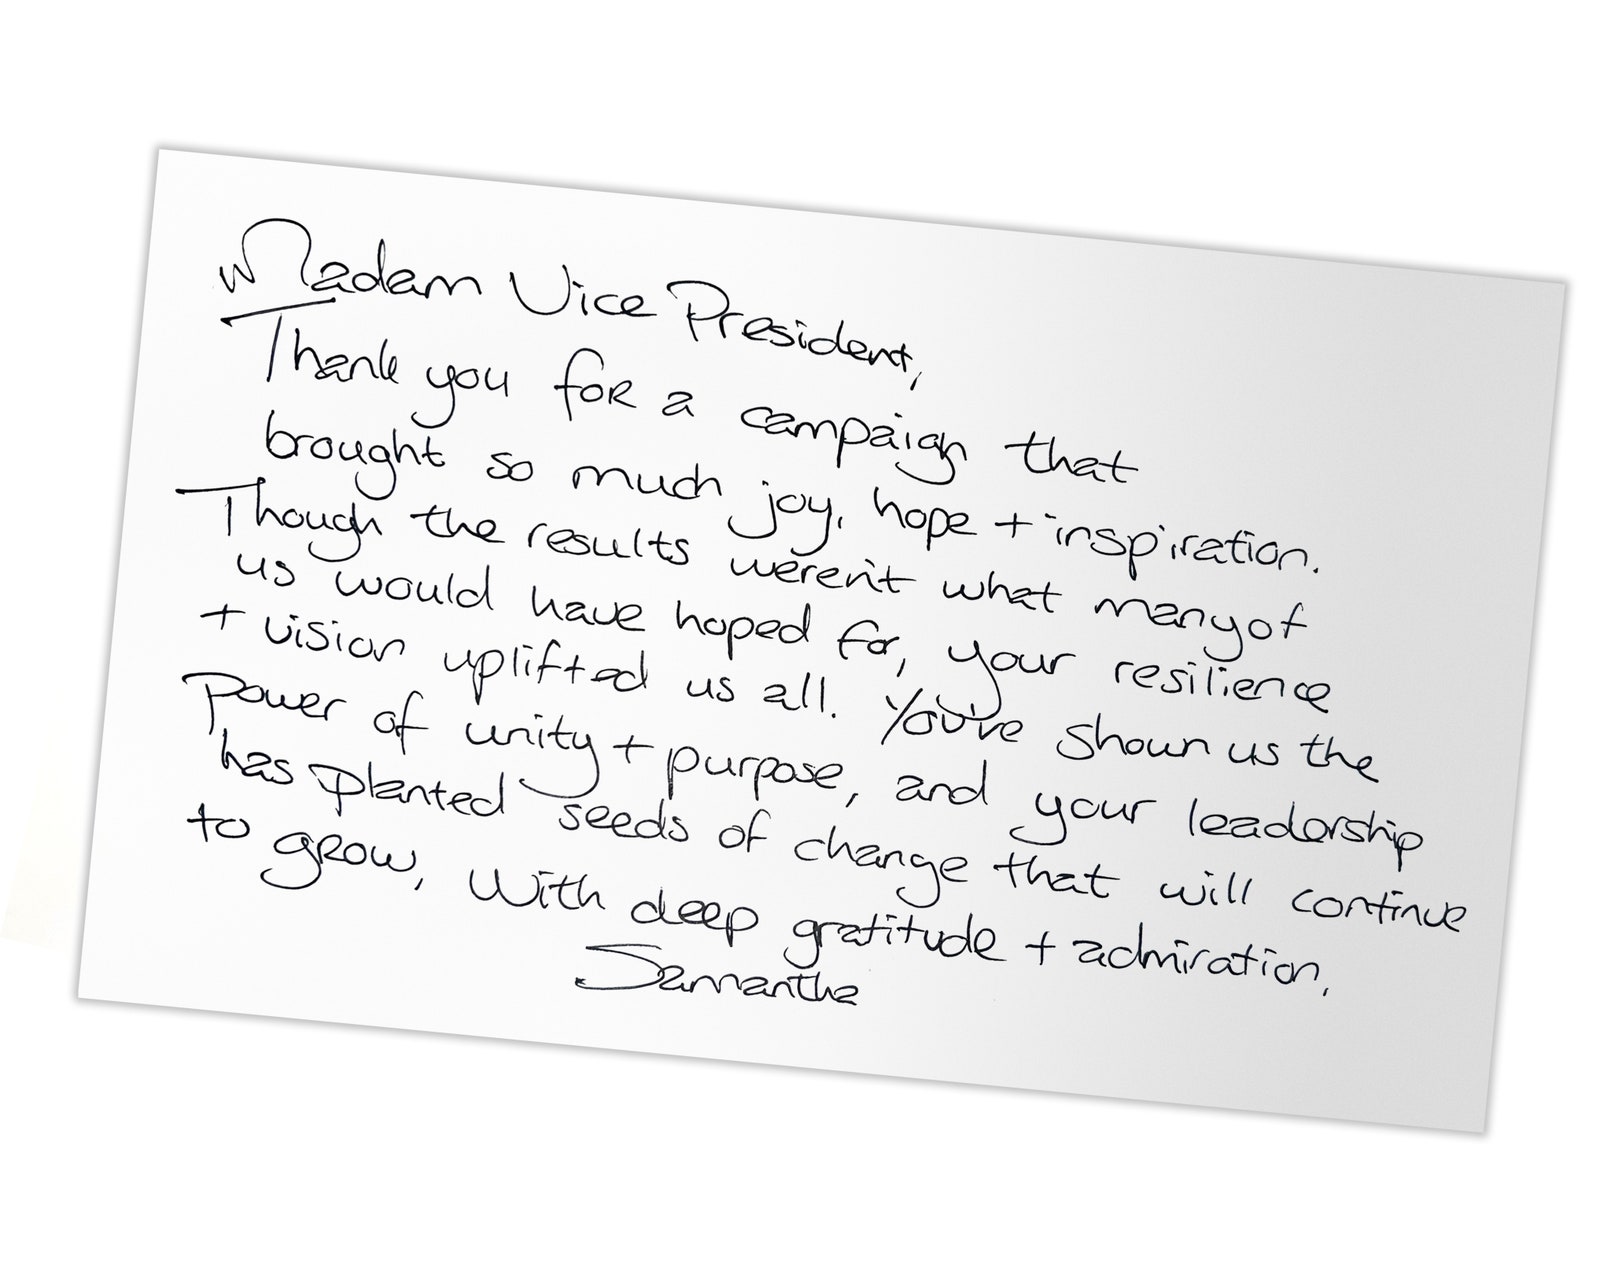 Madam Vice President,
Thank you for a campaign that
brought so much joy, hope + inspiration.
Though the results weren't what many of
us would have hoped for, your resilience
+ vision uplifted us all. You've shown us the
power of unity + purpose, and your leadership
has planted seeds of change that will continue
to grow, With deep gratitude + admiration,
Samantha